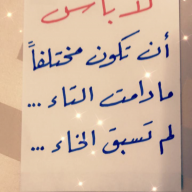 لا بأس
أن تكون مختلفاً
مادامت التاء ...
لم تسبق الخاء ...